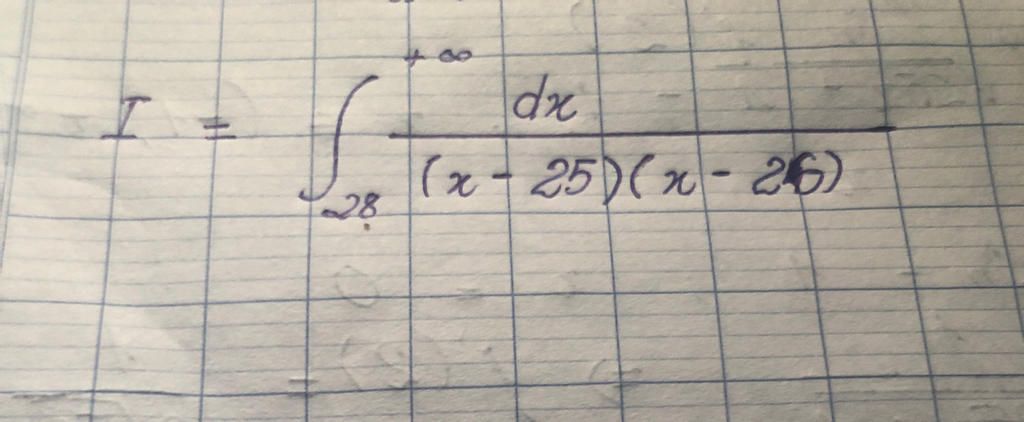 I = ∫_{28}^{+∞} dx / (x - 25)(x - 26)